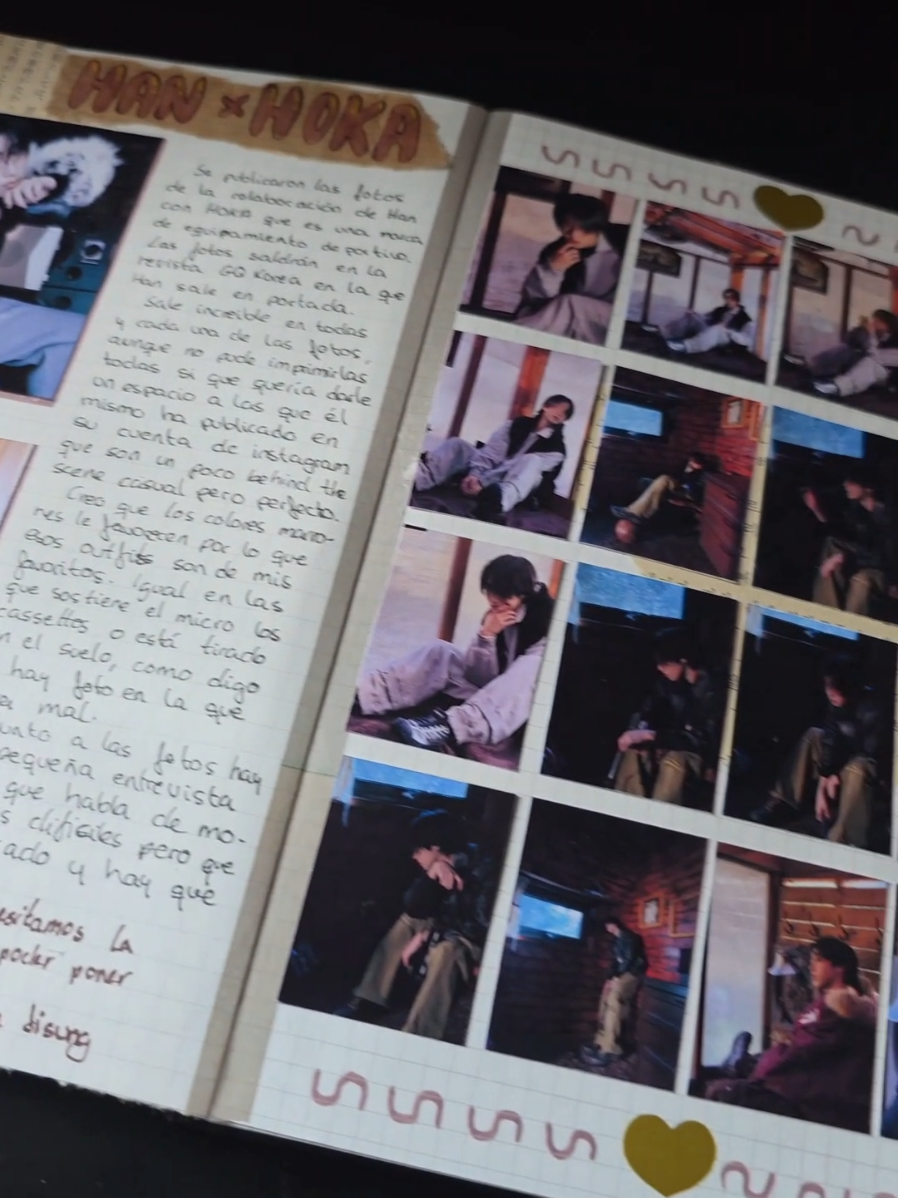 HAN x HOKA
Se publicaron las fotos
de la colaboración de Han
con HOKA que es una marca
de equipamiento deportivo.
Las fotos saldrán en la
revista GQ Korea en la que
Han sale en portada.
Sale increíble en todas
y cada una de las fotos,
aunque no pude imprimirlas
todas si que quería darle
un espacio a las que él
mismo ha publicado en
su cuenta de instagram
que son un poco behind the
scene casual pero perfecto.
Creo que los colores marro-
nes le favorecen por lo que
esos outfits son de mis
favoritos. Igual en las
que sostiene el micro los
cassettes o está tirado
el suelo, como digo
hay foto en la que
mal.
a las fotos hay
pequeña entrevista
que habla de mo-
difíciles pero que
y hay que
la
poder poner
Jisung